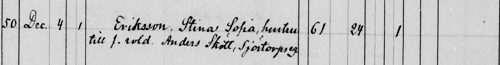 50 Dec. 4 1 Eriksson, Stina Sofia, hustru 61 24 1
till f. sold. Anders Skött, Sjötorpseg